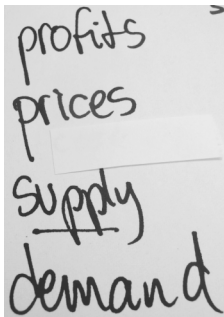 profits
prices
supply
demand